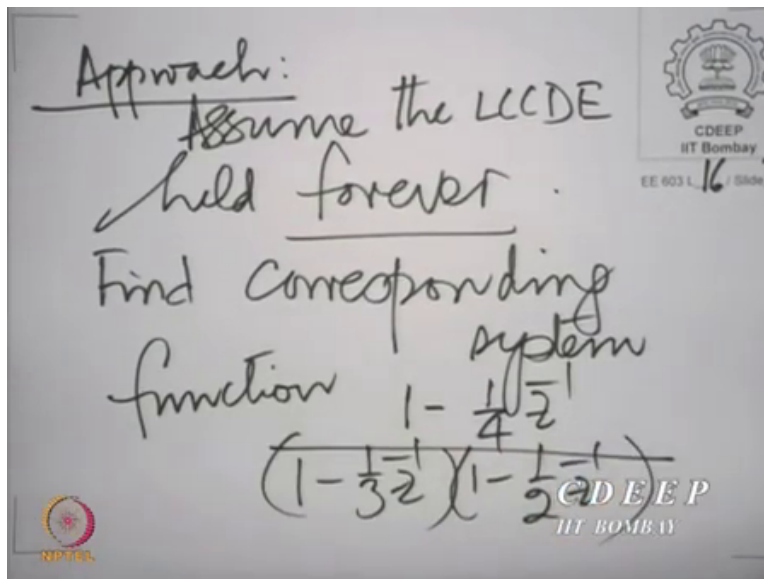 Approach:
Assume the LCCDE
held forever.
Find corresponding
system
function
1 - 1/4 z^-1
(1 - 1/3 z^-1)(1 - 1/2 z^-1)
CDEEP
IIT Bombay
EE 603 L 16 / Slide
NPTEL
CDEEP
IIT BOMBAY